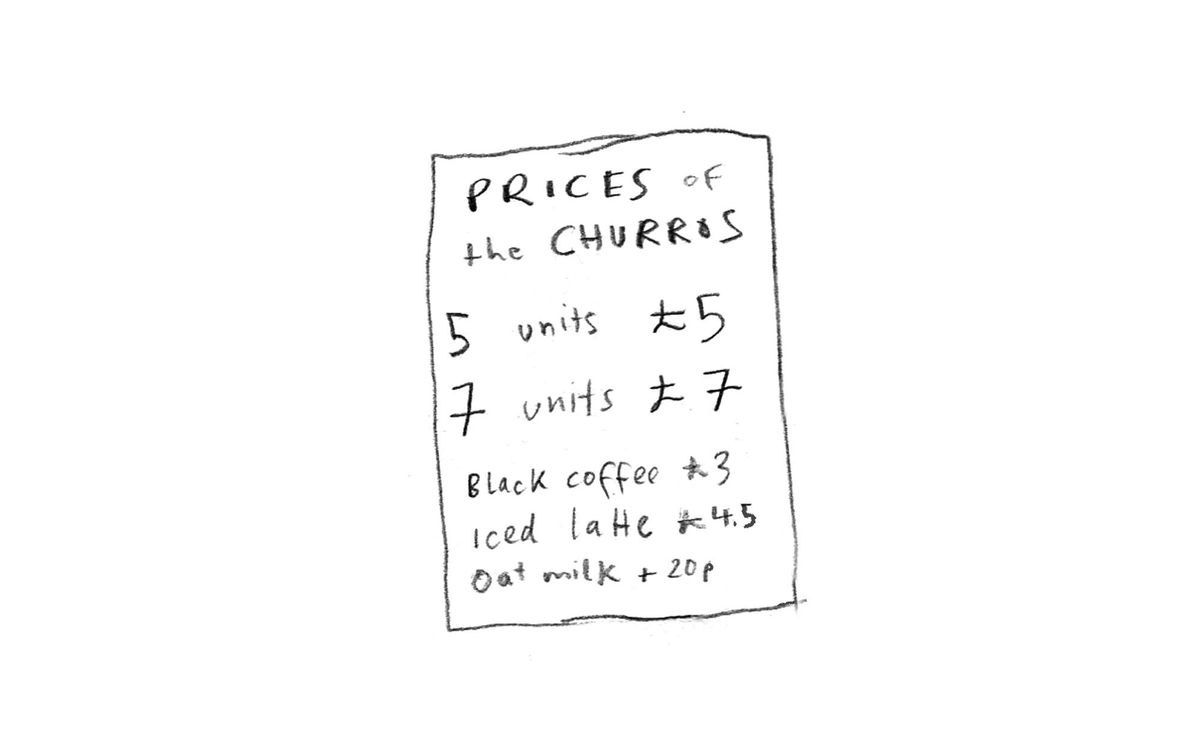 PRICES of
the CHURROS
5 units £5
7 units £7
Black coffee £3
Iced latte £4.5
Oat milk + 20p